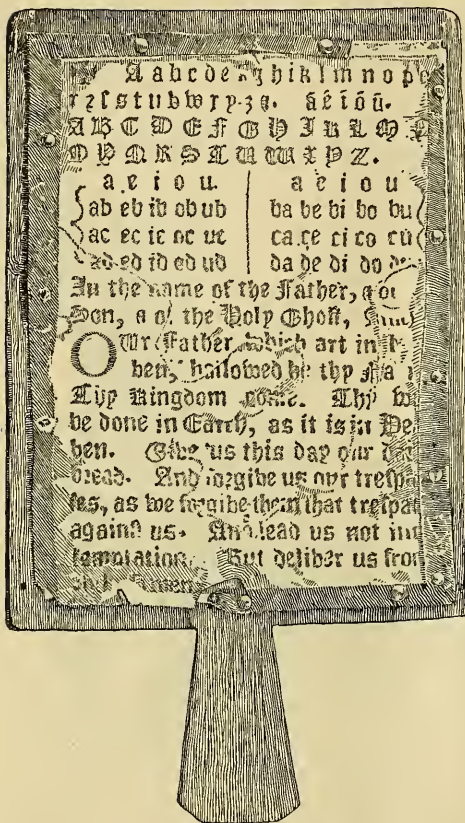 A a b c d e g h i k l m n o p
r ꝛ ſ s t u b w x y z a e i o u
A B C D E F G H I K L M
O P Q R S T U W X Y Z.
a e i o u a e i o u
ab eb ib ob ub ba be bi bo bu
ac ec ic oc uc ca ce ci co cu
ad ed id od ud da de di do
In the name of the Father,
Son, of the Holy Ghoſt,
OUr Father, which art in
ben, hallowed be thy
Thy Kingdom come. Thy
be done in Earth, as it is in Hea
ben. Give us this day our
bread. And forgive us our treſpaſ
ſes, as we forgive them that treſpaſ
againſt us. And lead us not in
temptation. But deliver us from
Amen